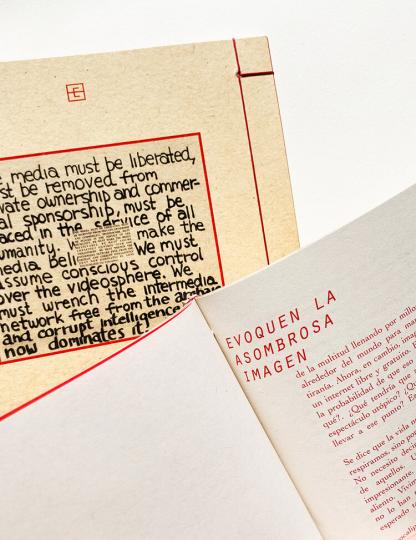 media must be liberated,
must be removed from
private ownership and commer-
al sponsorship, must be
placed in the service of all
humanity. We make the
media beli We must
assume conscious control
over the videosphere. We
must wrench the intermedia
network free from the
and corrupt intelligence
now dominates it!
EVOQUEN LA
ASOMBROSA
IMAGEN
de la multitud llenando por millo
alrededor del mundo para
tiranía. Ahora, en cambio, imag
un internet libre y gratuito. E
la probabilidad de que eso
qué?. ¿Qué tendría que
espectáculo utópico? ¿Q
llevar a ese punto? Es
Se dice que la vida n
respiramos, sino por
No necesito deci
de aquellos. U
impresionante,
aliento. Vivim
no lo han
esperado t